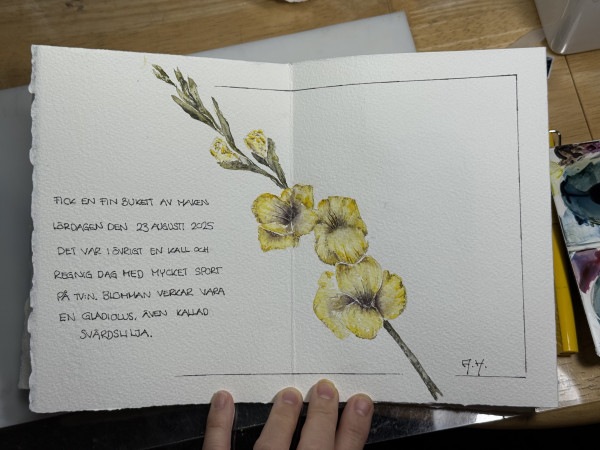 FICK EN FIN BUKETT AV MAKEN
LÖRDAGEN DEN 23 AUGUSTI 2025
DET VAR I ÖVRIGT EN KALL OCH
REGNIG DAG MED MYCKET SPORT
PÅ TVN. BLOMMAN VERKAR VARA
EN GLADIOLUS, ÄVEN KALLAD
SVÄRDSLILJA.
A.H.